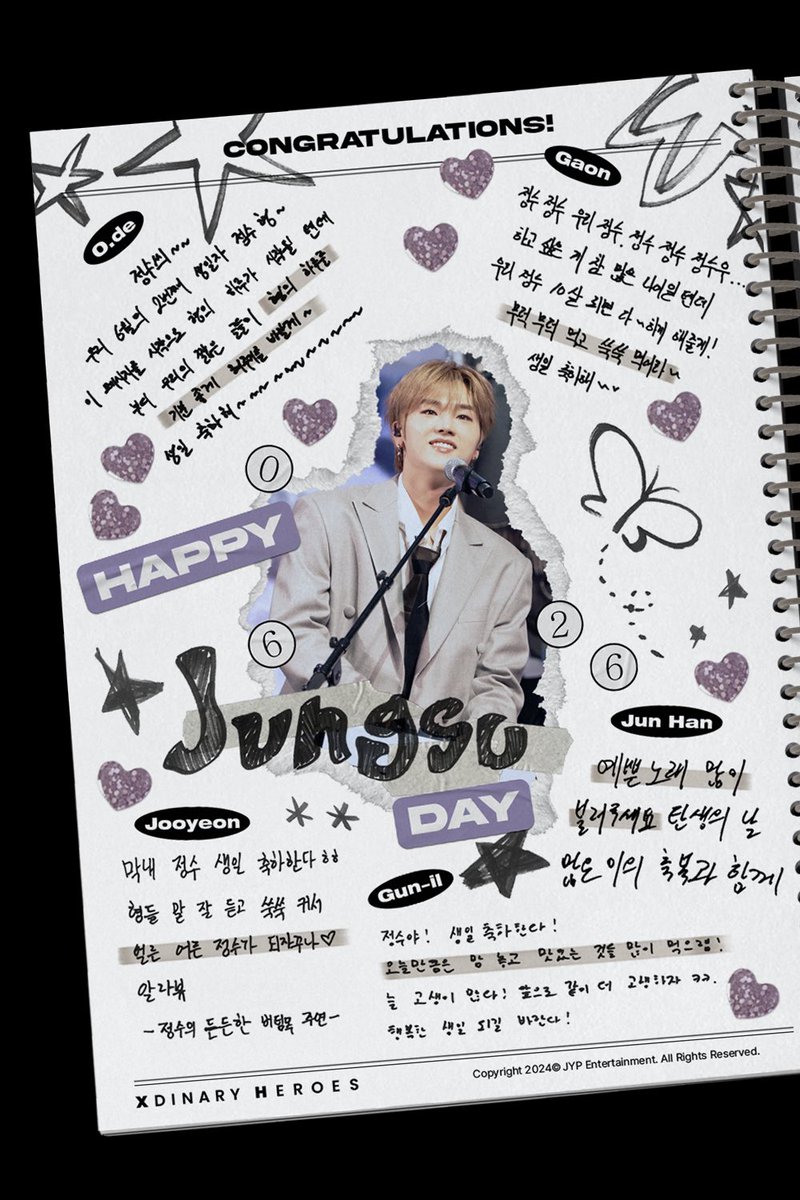 CONGRATULATIONS!
O.de
정수씌~~
우리 6월의 2번째 생일자 정수형~
이 메시지를 시작으로 형의 하루가 시작될 텐데
부디 우리의 짧은 글들이 형의 하루를
기분 좋게 해줬음 바랄게~
생일 축하혀~~~~~~~~~~
Gaon
정수 정수 우리 정수. 정수 정수 정수우...
하고 싶은 게 참 많은 나이일 텐데
우리 정수 10살 되면 다~하게 해줄게!
무럭무럭 먹고 쑥쑥 먹어라~
생일 축하해~~
0
HAPPY
6
2
6
Jungsu
DAY
Jun Han
예쁜 노래 많이
불러주세요 탄생의 날
많은 이의 축복과 함께
Jooyeon
막내 정수 생일 축하한다 ㅎㅎ
형들 말 잘 듣고 쑥쑥 커서
얼른 어른 정수가 되자꾸나♡
알라뷰
-정수의 든든한 버팀목 주연-
Gun-il
정수야! 생일 축하한다!
오늘만큼은 맘 놓고 맛있는 것들 많이 먹으렴!
늘 고생이 많다! 앞으로 같이 더 고생하자 ㅋㅋ.
행복한 생일 되길 바란다!
XDINARY HEROES
Copyright 2024© JYP Entertainment. All Rights Reserved.